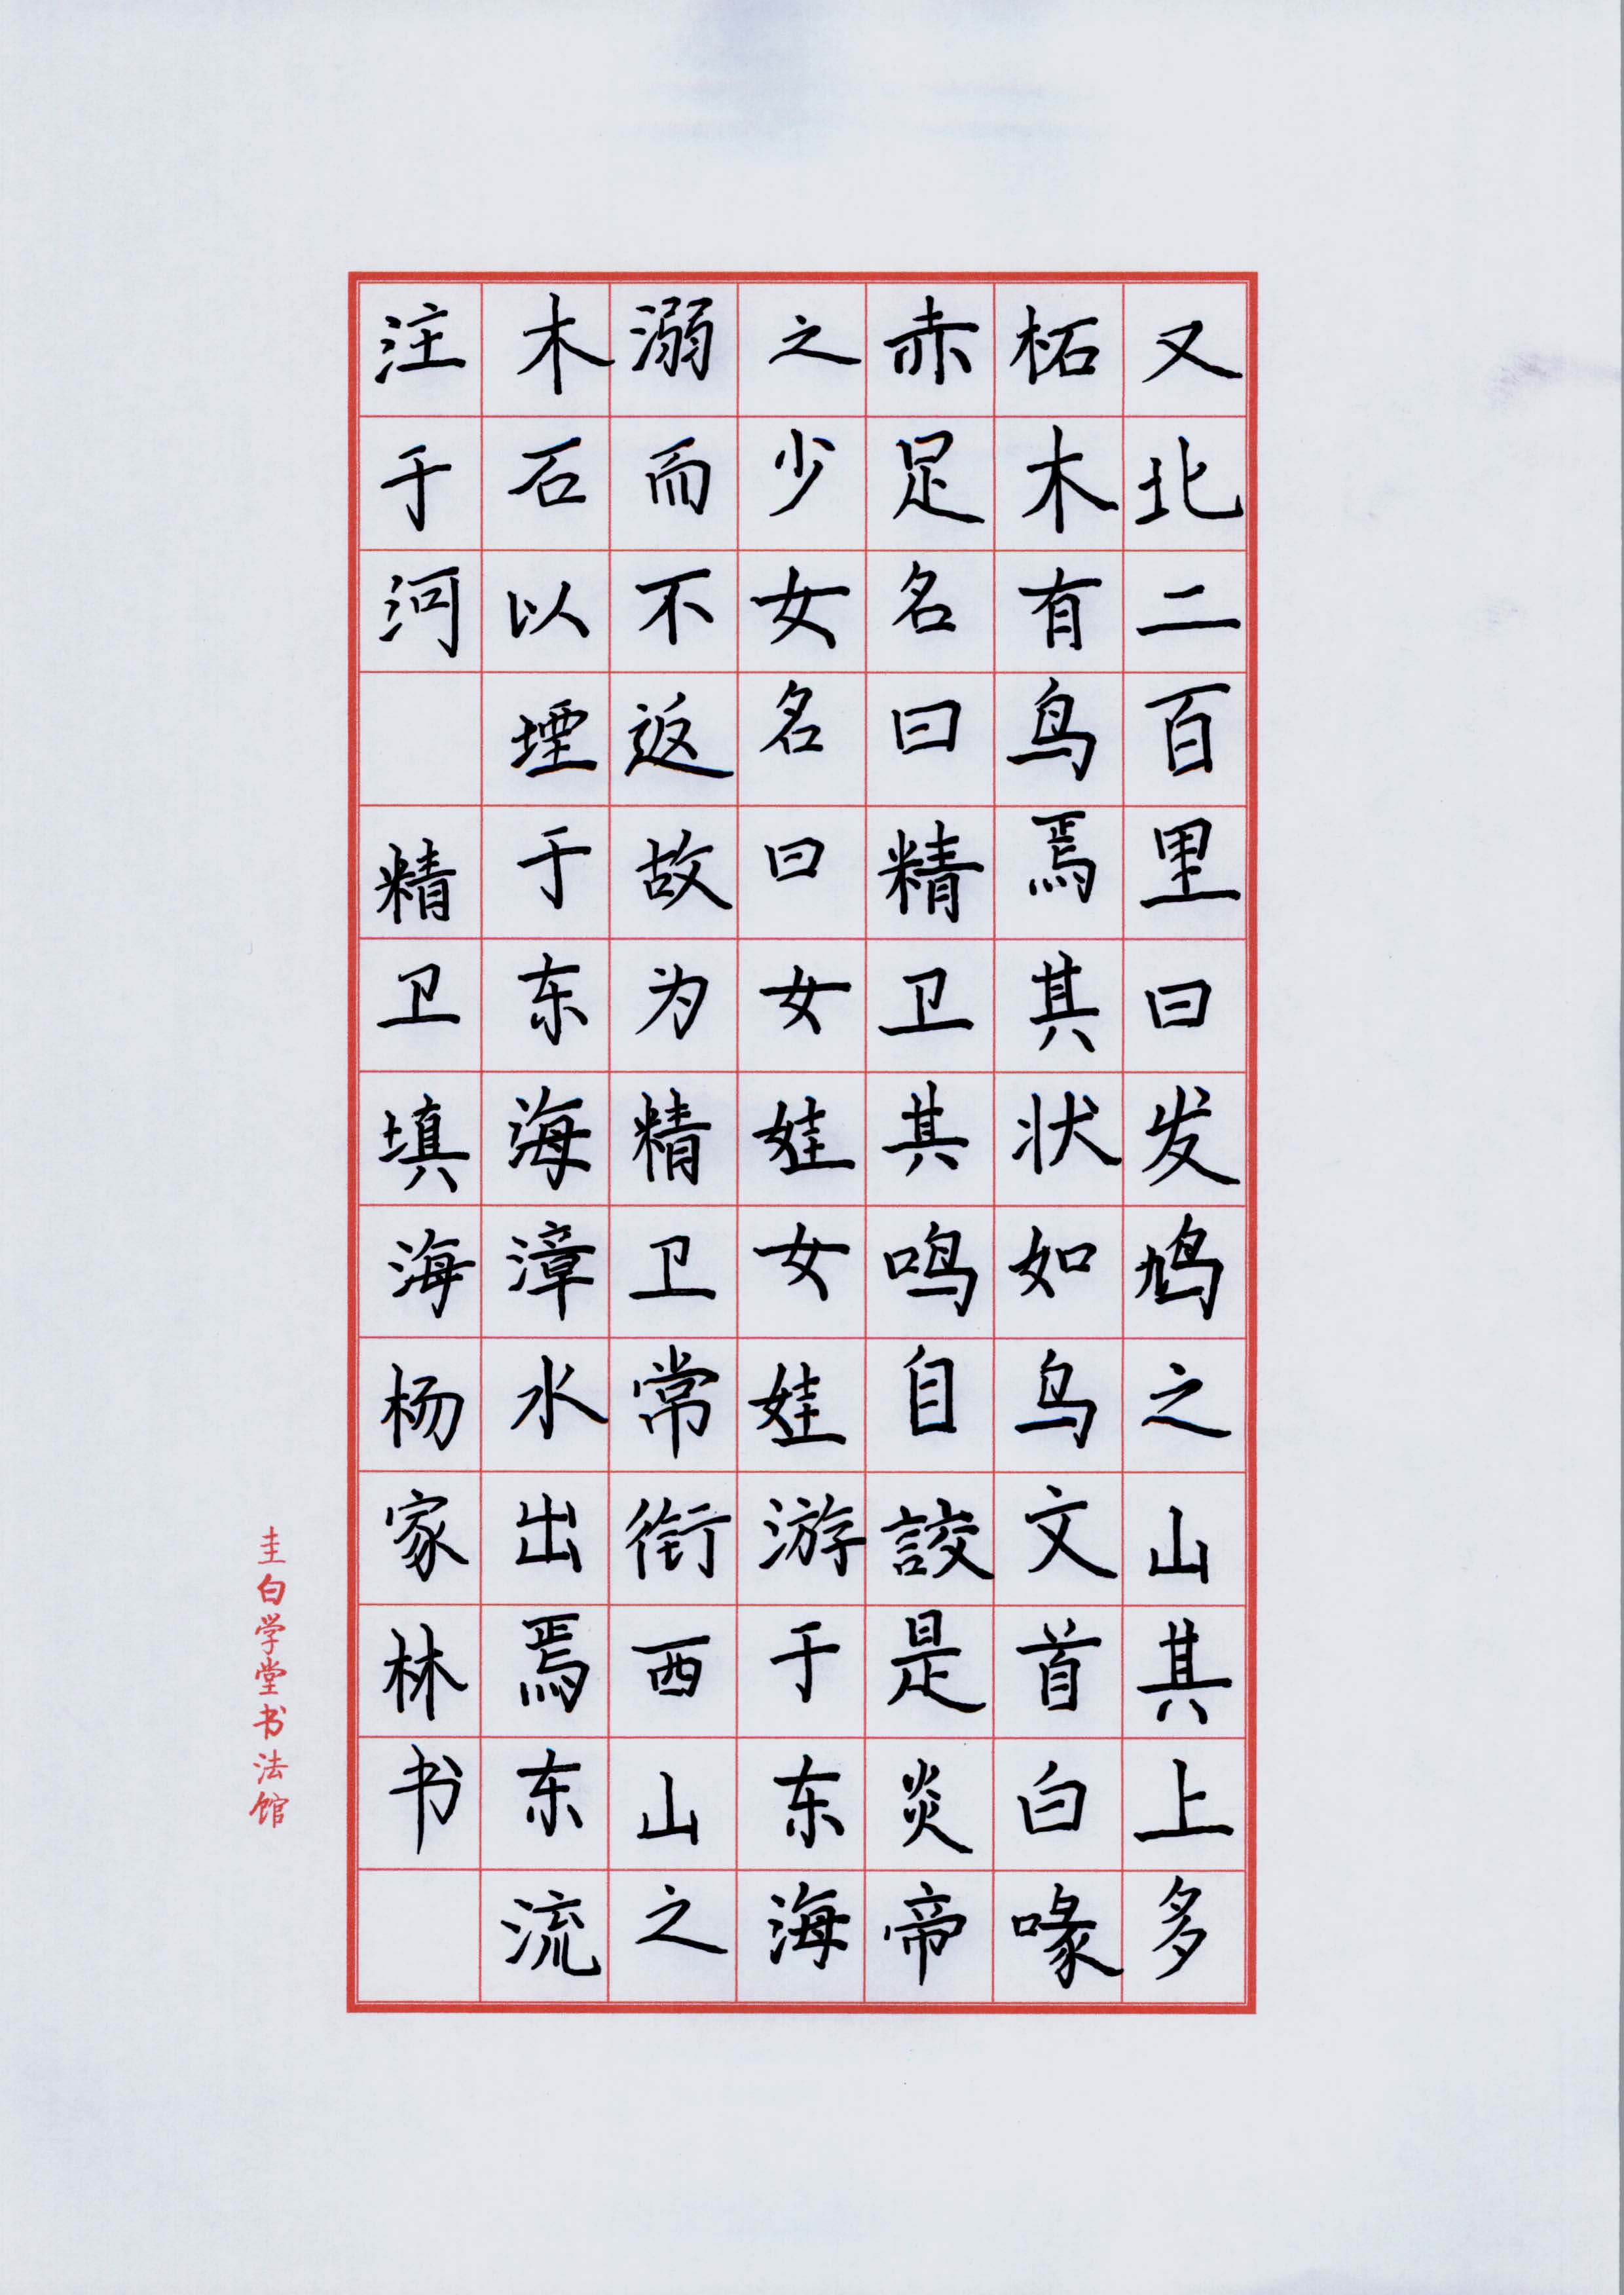 又北二百里曰发鸠之山其上多
柘木有鸟焉其状如乌文首白喙
赤足名曰精卫其鸣自詨是炎帝
之少女名曰女娃女娃游于东海
溺而不返故为精卫常衔西山之
木石以堙于东海漳水出焉东流
注于河 精卫填海杨家林书
圭白学堂书法馆